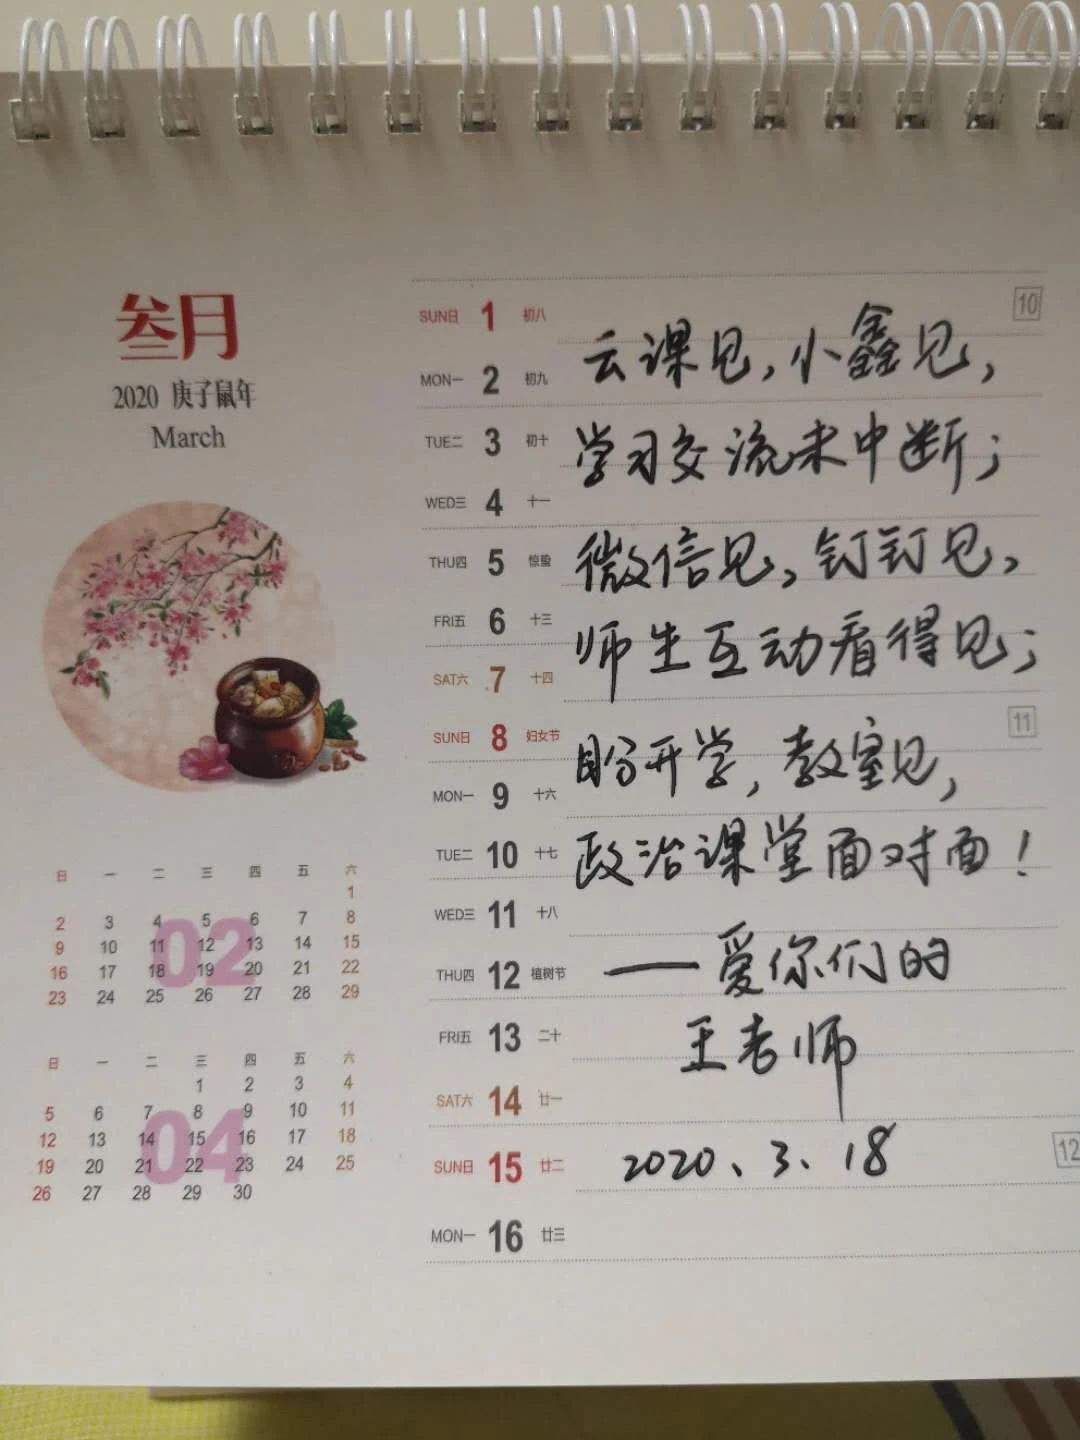 叁月
2020 庚子鼠年
March
SUN日 1 初八
MON一 2 初九
TUE二 3 初十
WED三 4 十一
THU四 5 惊蛰
FRI五 6 十三
SAT六 7 十四
SUN日 8 妇女节
MON一 9 十六
TUE二 10 十七
WED三 11 十八
THU四 12 植树节
FRI五 13 二十
SAT六 14 廿一
SUN日 15 廿二
MON一 16 廿三
10
11
12
云课见,小鑫见,
学习交流未中断;
微信见,钉钉见,
师生互动看得见;
盼开学,教室见,
政治课堂面对面!
——爱你们的
王老师
2020、3、18
02
日 一 二 三 四 五 六
1
2 3 4 5 6 7 8
9 10 11 12 13 14 15
16 17 18 19 20 21 22
23 24 25 26 27 28 29
04
日 一 二 三 四 五 六
1 2 3 4
5 6 7 8 9 10 11
12 13 14 15 16 17 18
19 20 21 22 23 24 25
26 27 28 29 30